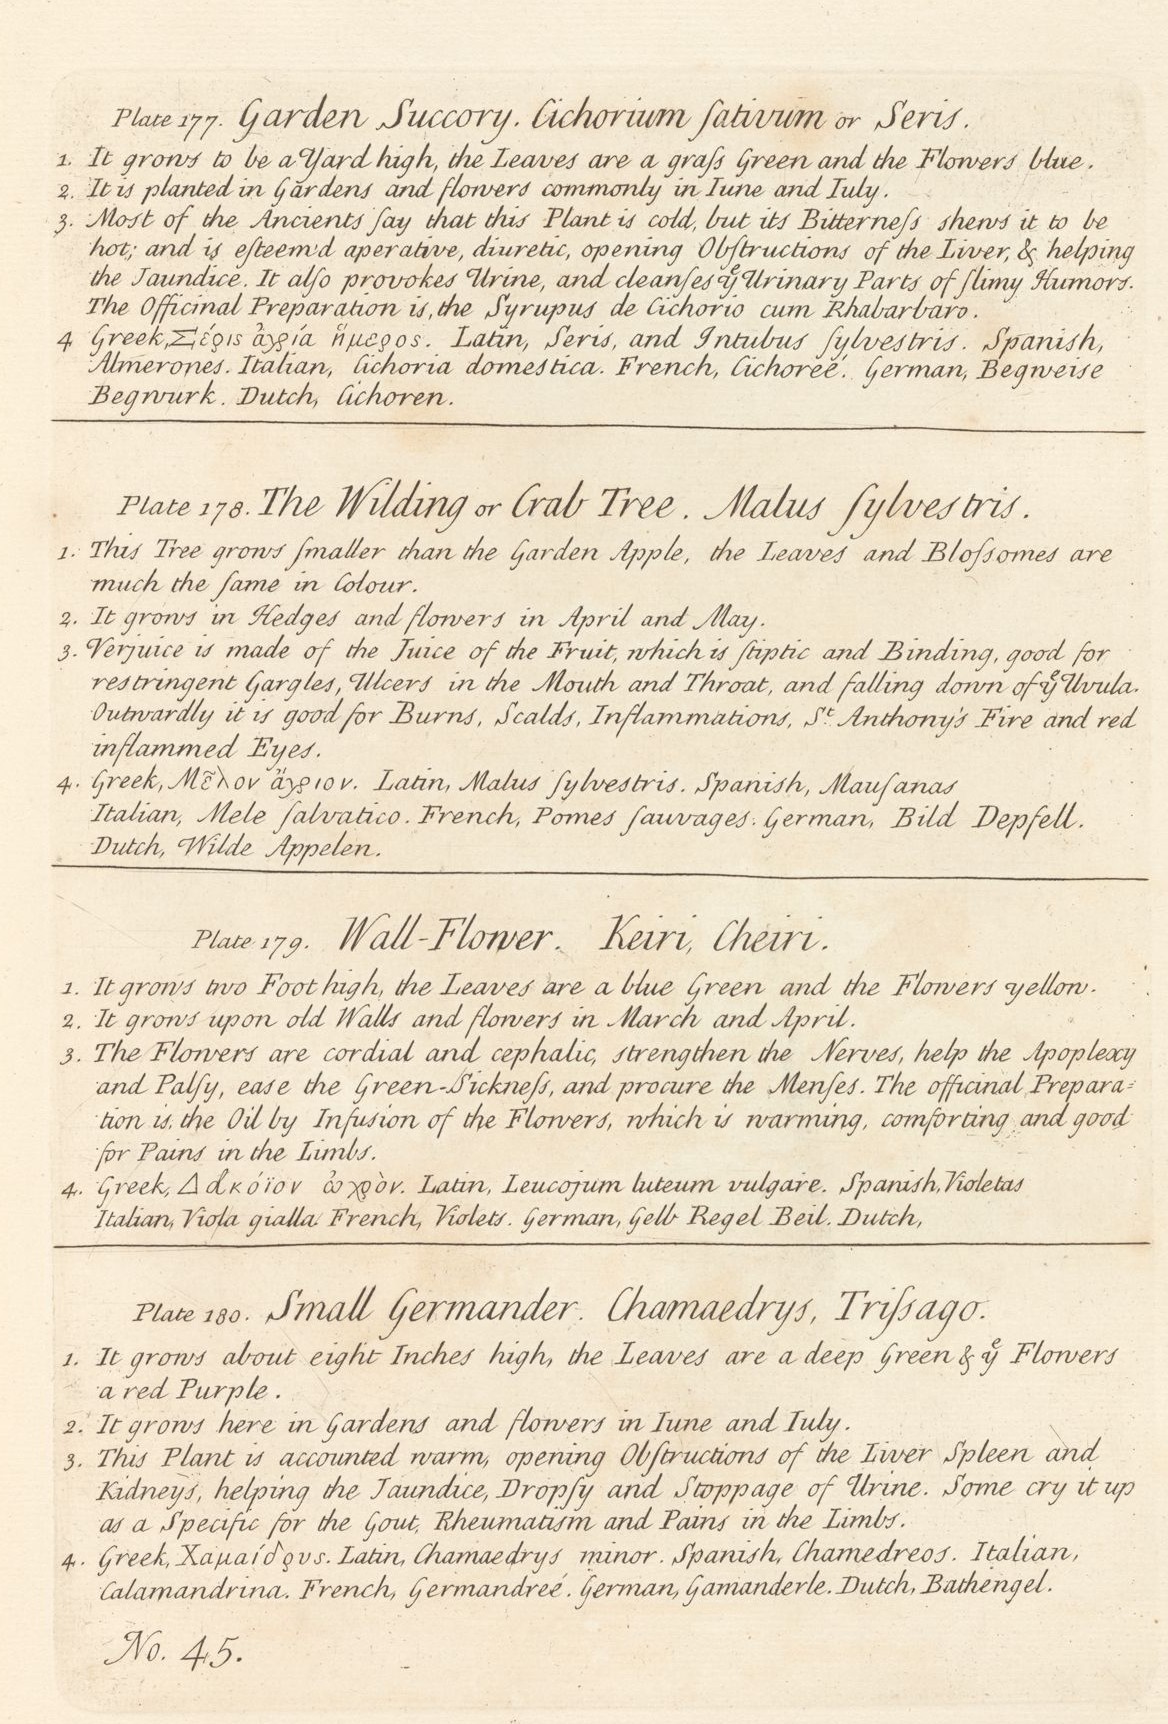 Plate 177. Garden Succory. Cichorium ſativum or Seris.
1. It grows to be a Yard high, the Leaves are a graſs Green and the Flowers blue.
2. It is planted in Gardens and flowers commonly in Iune and Iuly.
3. Most of the Ancients ſay that this Plant is cold, but its Bitterneſs shews it to be
hot; and is eſteem'd aperative, diuretic, opening Obſtructions of the Liver, & helping
the Jaundice. It alſo provokes Urine, and cleanſes yͤ Urinary Parts of ſlimy Humors.
The Officinal Preparation is, the Syrupus de Cichorio cum Rhabarbaro.
4 Greek, Σέρις ἀγρία ἥμερος. Latin, Seris, and Intubus ſylvestris. Spanish,
Almerones. Italian, Cichoria domestica. French, Cichoreé. German, Begweise
Begwurk. Dutch, Cichoren.
Plate 178. The Wilding or Crab Tree. Malus ſylvestris.
1. This Tree grows ſmaller than the Garden Apple, the Leaves and Bloſsomes are
much the ſame in Colour.
2. It grows in Hedges and flowers in April and May.
3. Verjuice is made of the Juice of the Fruit, which is ſtiptic and Binding, good for
restringent Gargles, Ulcers in the Mouth and Throat, and falling down of yͤ Uvula.
Outwardly it is good for Burns, Scalds, Inflammations, Sᵗ. Anthony's Fire and red
inflammed Eyes.
4. Greek, Μῆλον ἄγριον. Latin, Malus ſylvestris. Spanish, Mauſanas
Italian, Mele ſalvatico. French, Pomes ſauvages. German, Bild Depfell.
Dutch, Wilde Appelen.
Plate 179. Wall-Flower. Keiri, Cheiri.
1. It grows two Foot high, the Leaves are a blue Green and the Flowers yellow.
2. It grows upon old Walls and flowers in March and April.
3. The Flowers are cordial and cephalic, strengthen the Nerves, help the Apoplexy
and Palſy, ease the Green-Sickneſs, and procure the Menſes. The officinal Prepara=
tion is, the Oil by Infusion of the Flowers, which is warming, comforting and good
for Pains in the Limbs.
4. Greek, ὠχρὸν. Latin, Leucojum luteum vulgare. Spanish, Violetas
Italian, Viola gialla. French, Violets. German, Gelb Regel Beil. Dutch,
Plate 180. Small Germander. Chamaedrys, Triſsago.
1. It grows about eight Inches high, the Leaves are a deep Green & yͤ Flowers
a red Purple.
2. It grows here in Gardens and flowers in Iune and Iuly.
3. This Plant is accounted warm, opening Obſtructions of the Liver Spleen and
Kidneys, helping the Jaundice, Dropſy and Stoppage of Urine. Some cry it up
as a Specific for the Gout, Rheumatism and Pains in the Limbs.
4. Greek, Χαμαίδρυς. Latin, Chamaedrys minor. Spanish, Chamedreos. Italian,
Calamandrina. French, Germandreé. German, Gamanderle. Dutch, Bathengel.
No. 45.